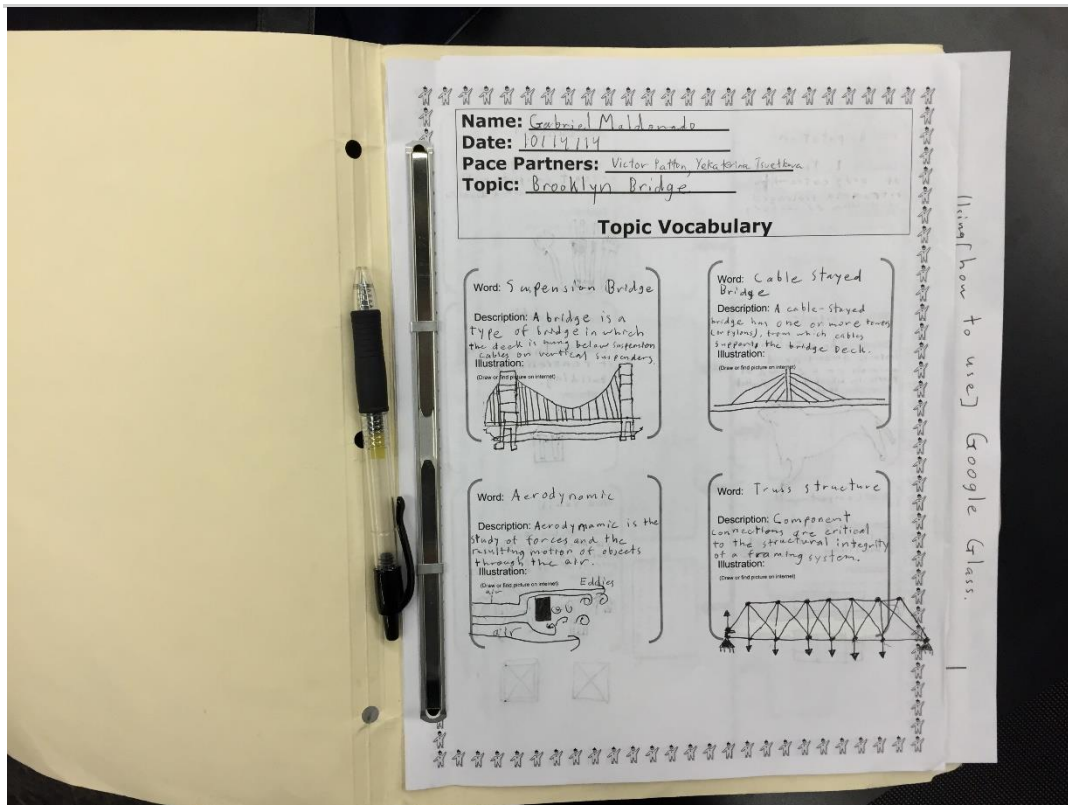 Name: Gabriel Maldonado
Date: 10/14/14
Pace Partners: Victor Patton, Yekaterina Tsvetkova
Topic: Brooklyn Bridge
Topic Vocabulary
Word: Suspension Bridge
Description: A bridge is a
type of bridge in which
the deck is hung below suspension
cables on vertical suspenders
Illustration:
(Draw or find picture on internet)
Word: Cable Stayed
Bridge
Description: A cable-stayed
bridge has one or more towers
(or pylons), from which cables
supports the bridge Deck.
Illustration:
(Draw or find picture on internet)
Word: Aerodynamic
Description: Aerodynamic is the
study of forces and the
resulting motion of objects
through the air.
Illustration:
(Draw or find picture on internet)
air
Eddies
air
Word: Truss structure
Description: Component
connections are critical
to the structural integrity
of a framing system.
Illustration:
(Draw or find picture on internet)
how to use] Google Glass.